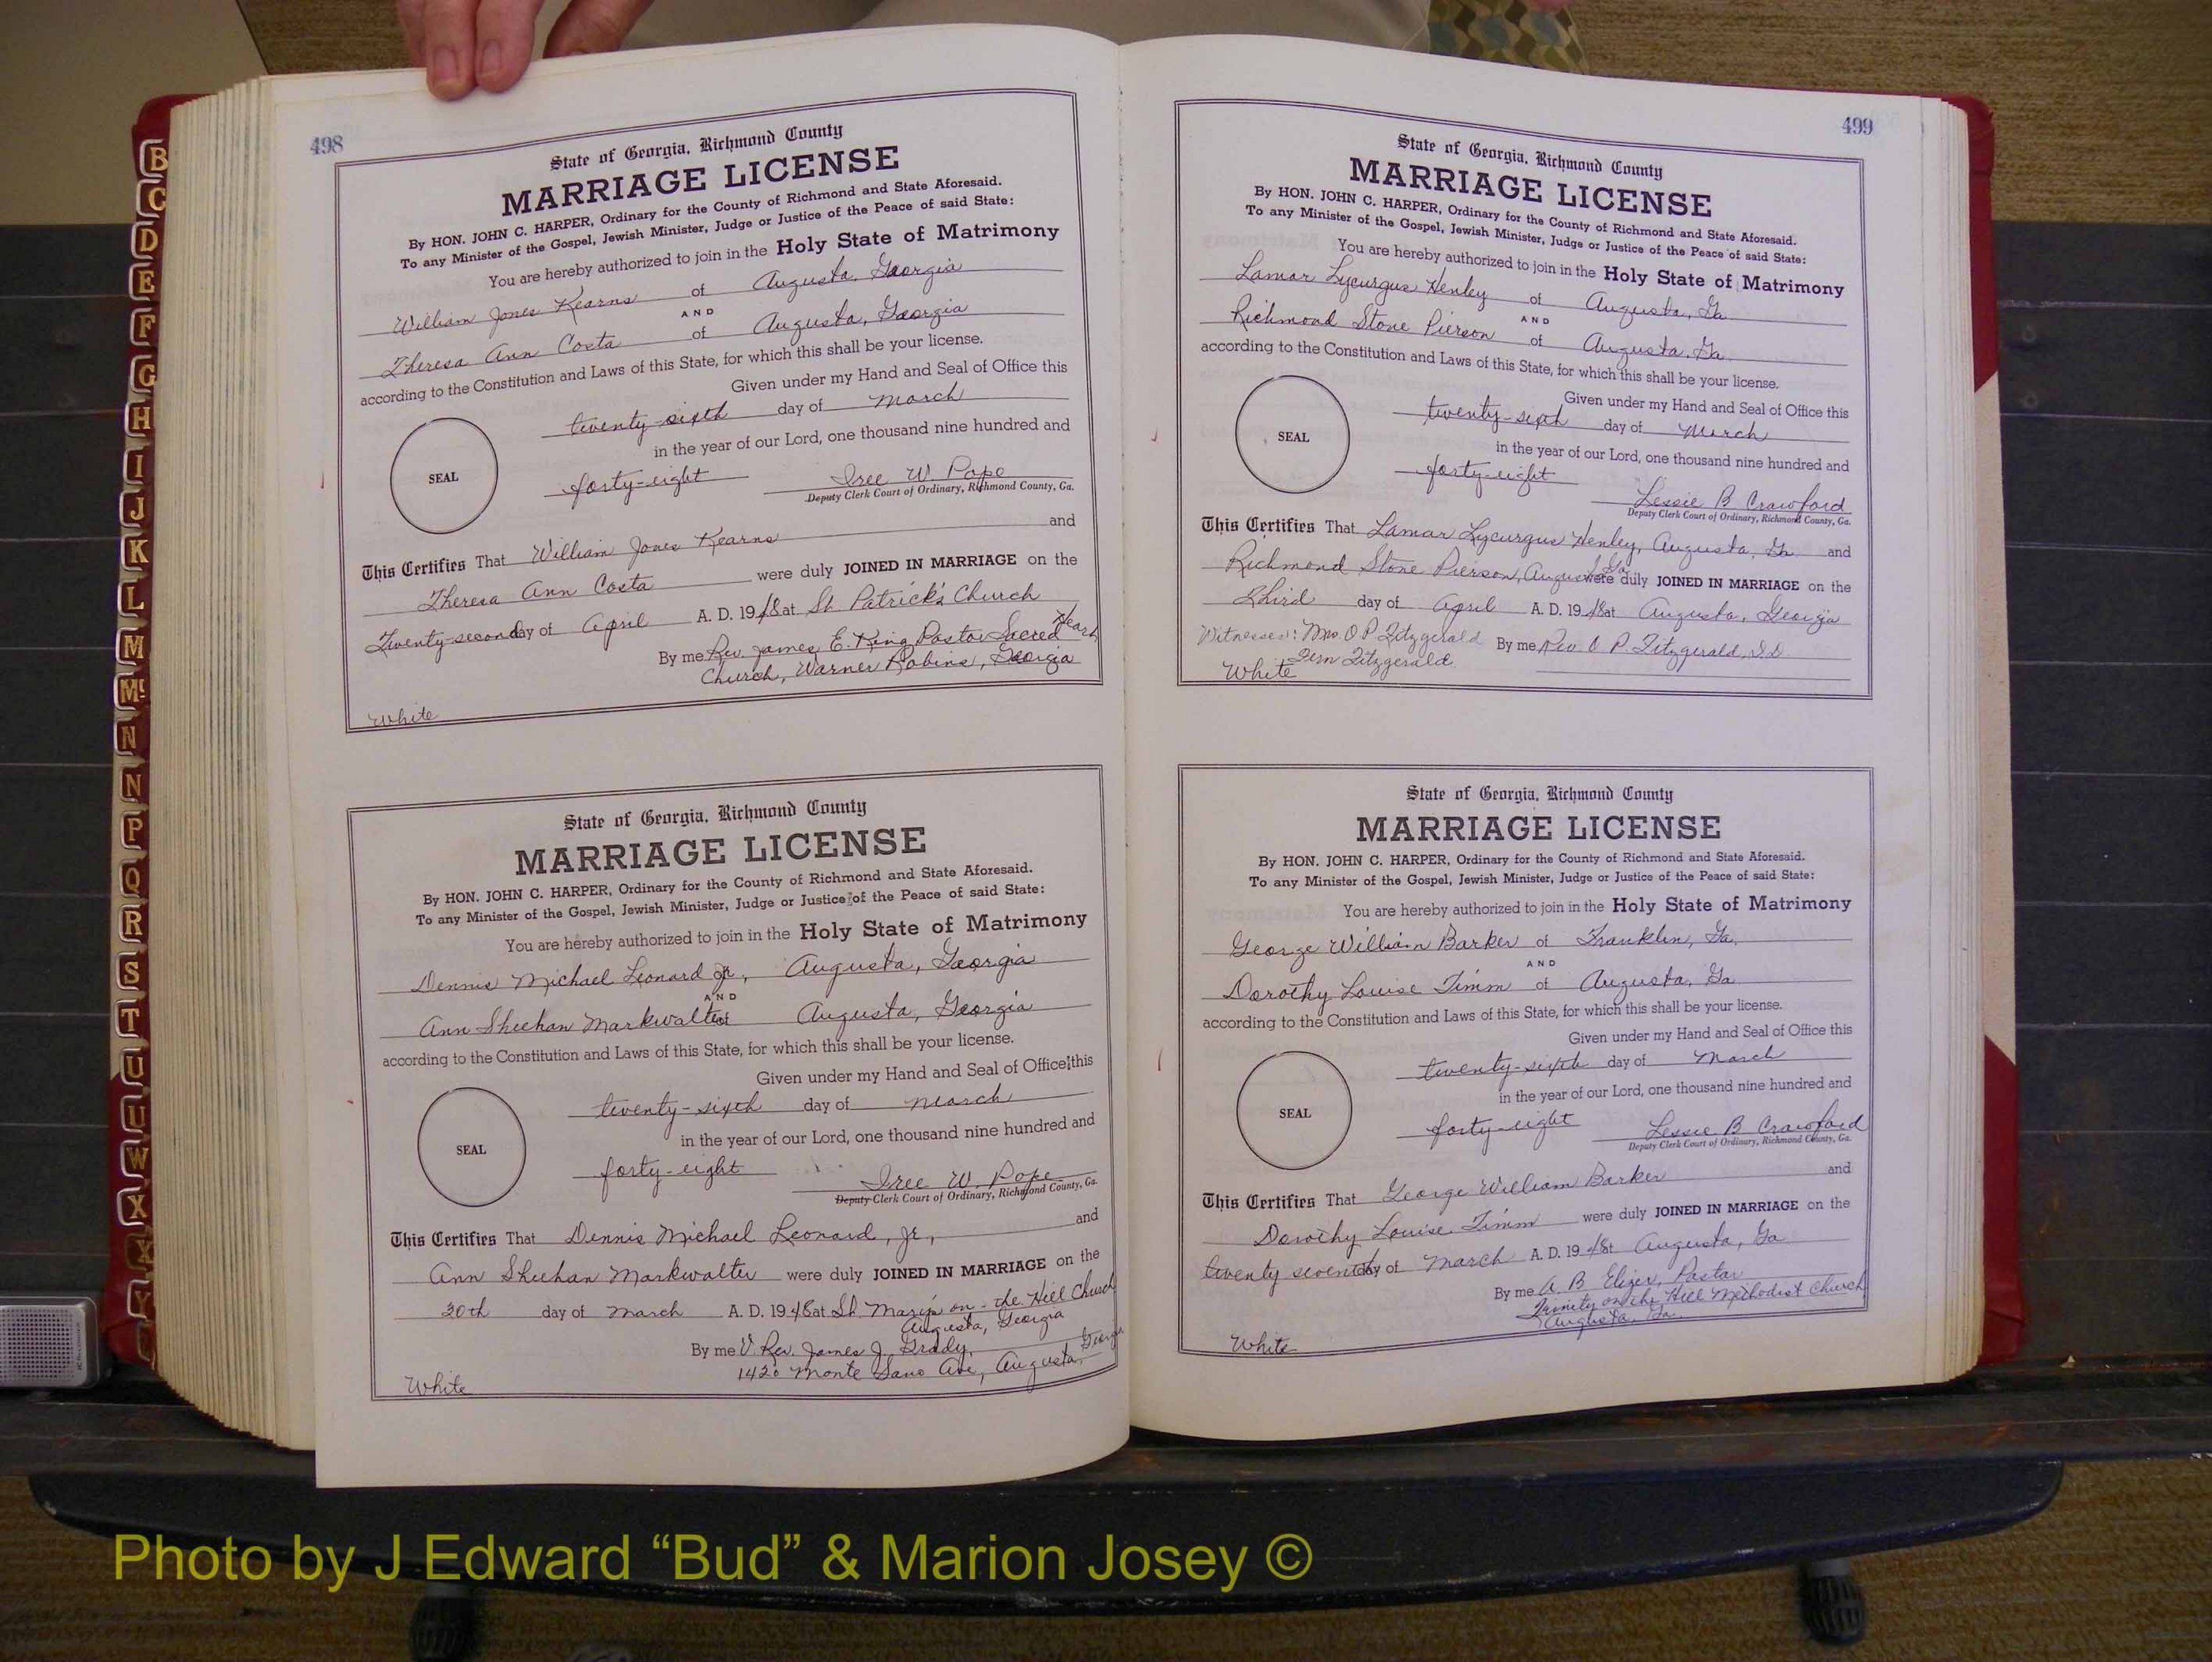 498
State of Georgia, Richmond County
MARRIAGE LICENSE
By HON. JOHN C. HARPER, Ordinary for the County of Richmond and State Aforesaid.
To any Minister of the Gospel, Jewish Minister, Judge or Justice of the Peace of said State:
You are hereby authorized to join in the Holy State of Matrimony
William Jones Kearns of Augusta, Georgia
AND
Theresa Ann Costa of Augusta, Georgia
according to the Constitution and Laws of this State, for which this shall be your license.
Given under my Hand and Seal of Office this
twenty-sixth day of March
in the year of our Lord, one thousand nine hundred and
SEAL
forty-eight Iree W. Pope
Deputy Clerk Court of Ordinary, Richmond County, Ga.
This Certifies That William Jones Kearns and
Theresa Ann Costa were duly JOINED IN MARRIAGE on the
Twenty-second day of April A. D. 1948 at St Patrick's Church
By me Rev. James E. King Pastor Sacred Heart
Church, Warner Robins, Georgia
White
State of Georgia, Richmond County
MARRIAGE LICENSE
By HON. JOHN C. HARPER, Ordinary for the County of Richmond and State Aforesaid.
To any Minister of the Gospel, Jewish Minister, Judge or Justice of the Peace of said State:
You are hereby authorized to join in the Holy State of Matrimony
Dennis Michael Leonard Jr, Augusta, Georgia
AND
Ann Sheehan Markwalter of Augusta, Georgia
according to the Constitution and Laws of this State, for which this shall be your license.
Given under my Hand and Seal of Office this
twenty-sixth day of March
in the year of our Lord, one thousand nine hundred and
SEAL
forty-eight Iree W. Pope
Deputy Clerk Court of Ordinary, Richmond County, Ga.
This Certifies That Dennis Michael Leonard, Jr, and
Ann Sheehan Markwalter were duly JOINED IN MARRIAGE on the
30th day of March A. D. 1948 at St Mary's on-the Hill Church
Augusta, Georgia
By me V. Rev. James J. Grady,
1420 Monte Sano Ave, Augusta, Georgia
White
499
State of Georgia, Richmond County
MARRIAGE LICENSE
By HON. JOHN C. HARPER, Ordinary for the County of Richmond and State Aforesaid.
To any Minister of the Gospel, Jewish Minister, Judge or Justice of the Peace of said State:
You are hereby authorized to join in the Holy State of Matrimony
Lamar Lycurgus Henley of Augusta, Ga
AND
Richmond Stone Pierson of Augusta, Ga
according to the Constitution and Laws of this State, for which this shall be your license.
Given under my Hand and Seal of Office this
twenty-sixth day of March
in the year of our Lord, one thousand nine hundred and
SEAL
forty-eight
Lessie B Crawford
Deputy Clerk Court of Ordinary, Richmond County, Ga.
This Certifies That Lamar Lycurgus Henley, Augusta, Ga and
Richmond Stone Pierson, Augusta, Ga were duly JOINED IN MARRIAGE on the
Third day of April A. D. 1948 at Augusta, Georgia
Witnesses: Mrs. O P Fitzgerald By me Rev O P Fitzgerald, D.D.
Fern Fitzgerald
White
State of Georgia, Richmond County
MARRIAGE LICENSE
By HON. JOHN C. HARPER, Ordinary for the County of Richmond and State Aforesaid.
To any Minister of the Gospel, Jewish Minister, Judge or Justice of the Peace of said State:
You are hereby authorized to join in the Holy State of Matrimony
George William Barker of Franklin, Ga,
AND
Dorothy Louise Timm of Augusta, Ga
according to the Constitution and Laws of this State, for which this shall be your license.
Given under my Hand and Seal of Office this
twenty-sixth day of March
in the year of our Lord, one thousand nine hundred and
SEAL
forty-eight Lessie B Crawford
Deputy Clerk Court of Ordinary, Richmond County, Ga.
This Certifies That George William Barker and
Dorothy Louise Timm were duly JOINED IN MARRIAGE on the
twenty seventh day of March A. D. 1948 at Augusta, Ga
By me A. B Elizer, Pastor
Trinity on the Hill Methodist Church
Augusta, Ga.
White
B
C
D
E
F
G
H
I
J
K
L
M
Mc
N
N
P
Q
R
S
T
U
U
W
X
X
Y
Photo by J Edward “Bud” & Marion Josey ©